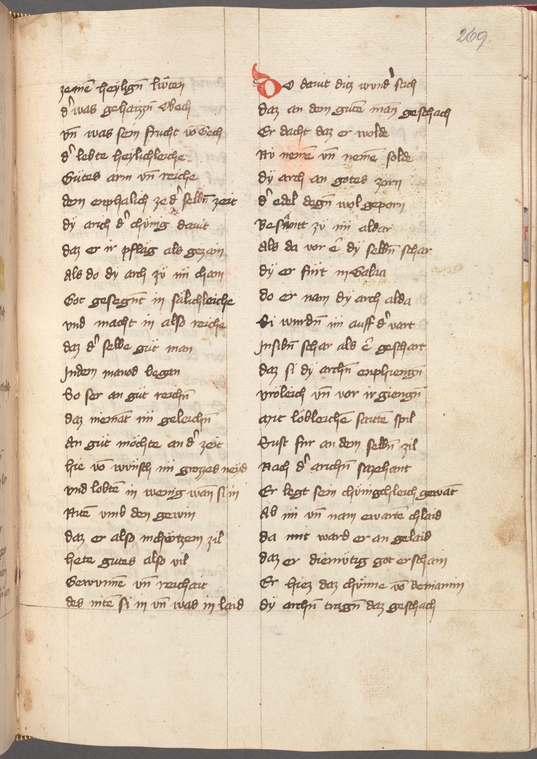 269
zemē heyligñ
d' was gehaizzñ
vñ was sein frucht
d' lebte heylichleiche
Gůtes arm vñ reiche
dem enphalich ze d' selbñ zeit
dy arch d' chünig dauit
daz er ir pfleg als gezam
Als do dy arch zů im cham
Got gesegent in sälichleiche
vnd macht in also reiche
daz d' selbe gůt man
Indem manod began
So ser an gůt reichñ
daz niemāt im geleichñ
An gůt möchte an d' zeit
hie vō wůnsch im grozzes neid
vnd lobtē in wenig wan si in
Nitē vmb den gewin
daz er also in churtzem zil
hete gutes also vil
Gewunnē vñ reichait
des nite si in vñ was in laid
Do dauit ditz wund' sach
daz an dem gůtē man geschach
Er dacht daz er wolde
Nv nemē vñ nemē solde
dy arch an gotes zorn
d' edel degñ wol geporn
Besant zů im aldar
als da vor ê dy selbñ schar
dy er fürt
do er nam dy arch alda
Si wurdñ im auff d' vart
In sölhñ schar als ê geschart
daz si dy archñ enphiengñ
vröleich vñ vor ir giengñ
mit lobleichē saitē spil
Sust für an dem selbñ zil
Nach d' archñ
Er legt sein chünigchleich gewāt
Ab im vñ nam ewartē chlaid
da mit ward er an gelaid
daz er diemütig got erscham
Er hiez daz chünne vō Beniamin
dy archñ tragñ daz geschach